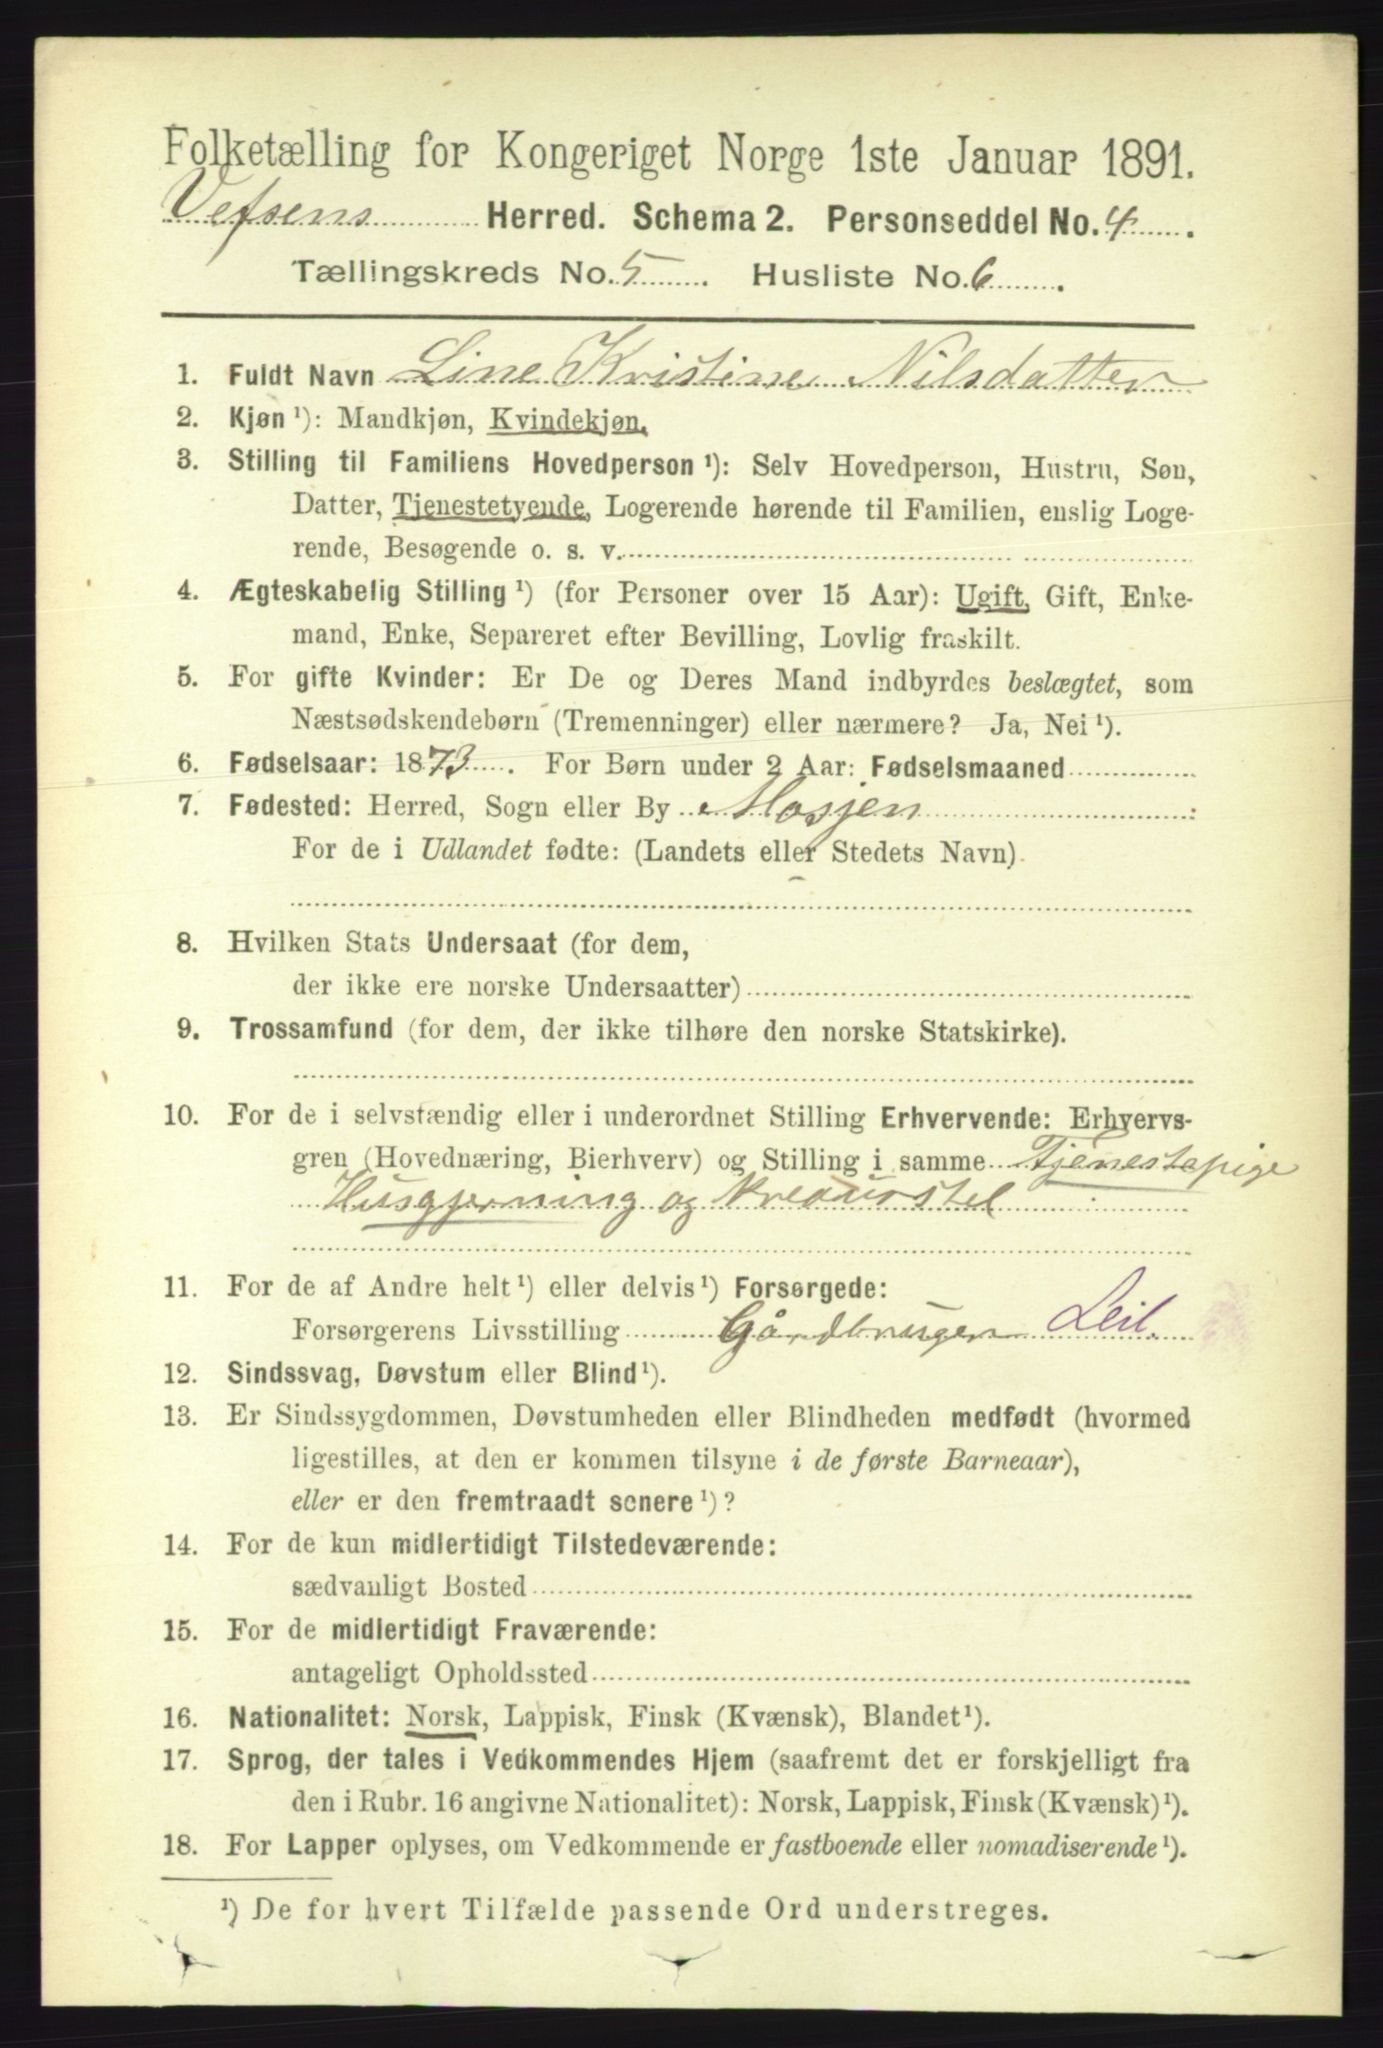 Folketælling for Kongeriget Norge 1ste Januar 1891.
Vefsens Herred. Schema 2. Personseddel No. 4.
Tællingskreds No. 5. Husliste No. 6.
1. Fuldt Navn Line Kristine Nilsdatter
2. Kjøn ¹): Mandkjøn, Kvindekjøn.
3. Stilling til Familiens Hovedperson ¹): Selv Hovedperson, Hustru, Søn,
Datter, Tjenestetyende, Logerende hørende til Familien, enslig Loge-
rende, Besøgende o. s. v.
4. Ægteskabelig Stilling ¹) (for Personer over 15 Aar): Ugift, Gift, Enke-
mand, Enke, Separeret efter Bevilling, Lovlig fraskilt.
5. For gifte Kvinder: Er De og Deres Mand indbyrdes beslægtet, som
Næstsødskendebørn (Tremenninger) eller nærmere? Ja, Nei ¹).
6. Fødselsaar: 1873. For Børn under 2 Aar: Fødselsmaaned
7. Fødested: Herred, Sogn eller By Mosjen
For de i Udlandet fødte: (Landets eller Stedets Navn).
8. Hvilken Stats Undersaat (for dem,
der ikke ere norske Undersaatter)
9. Trossamfund (for dem, der ikke tilhøre den norske Statskirke).
10. For de i selvstændig eller i underordnet Stilling Erhvervende: Erhvervs-
gren (Hovednæring, Bierhverv) og Stilling i samme Tjenestepige
Husgjerning og Kreaturstel
11. For de af Andre helt ¹) eller delvis ¹) Forsørgede:
Forsørgerens Livsstilling Gårdbruger Leil.
12. Sindssvag, Døvstum eller Blind ¹).
13. Er Sindssygdommen, Døvstumheden eller Blindheden medfødt (hvormed
ligestilles, at den er kommen tilsyne i de første Barneaar),
eller er den fremtraadt senere ¹)?
14. For de kun midlertidigt Tilstedeværende:
sædvanligt Bosted
15. For de midlertidigt Fraværende:
antageligt Opholdssted
16. Nationalitet: Norsk, Lappisk, Finsk (Kvænsk), Blandet ¹).
17. Sprog, der tales i Vedkommendes Hjem (saafremt det er forskjelligt fra
den i Rubr. 16 angivne Nationalitet): Norsk, Lappisk, Finsk (Kvænsk) ¹).
18. For Lapper oplyses, om Vedkommende er fastboende eller nomadiserende ¹).
¹) De for hvert Tilfælde passende Ord understreges.